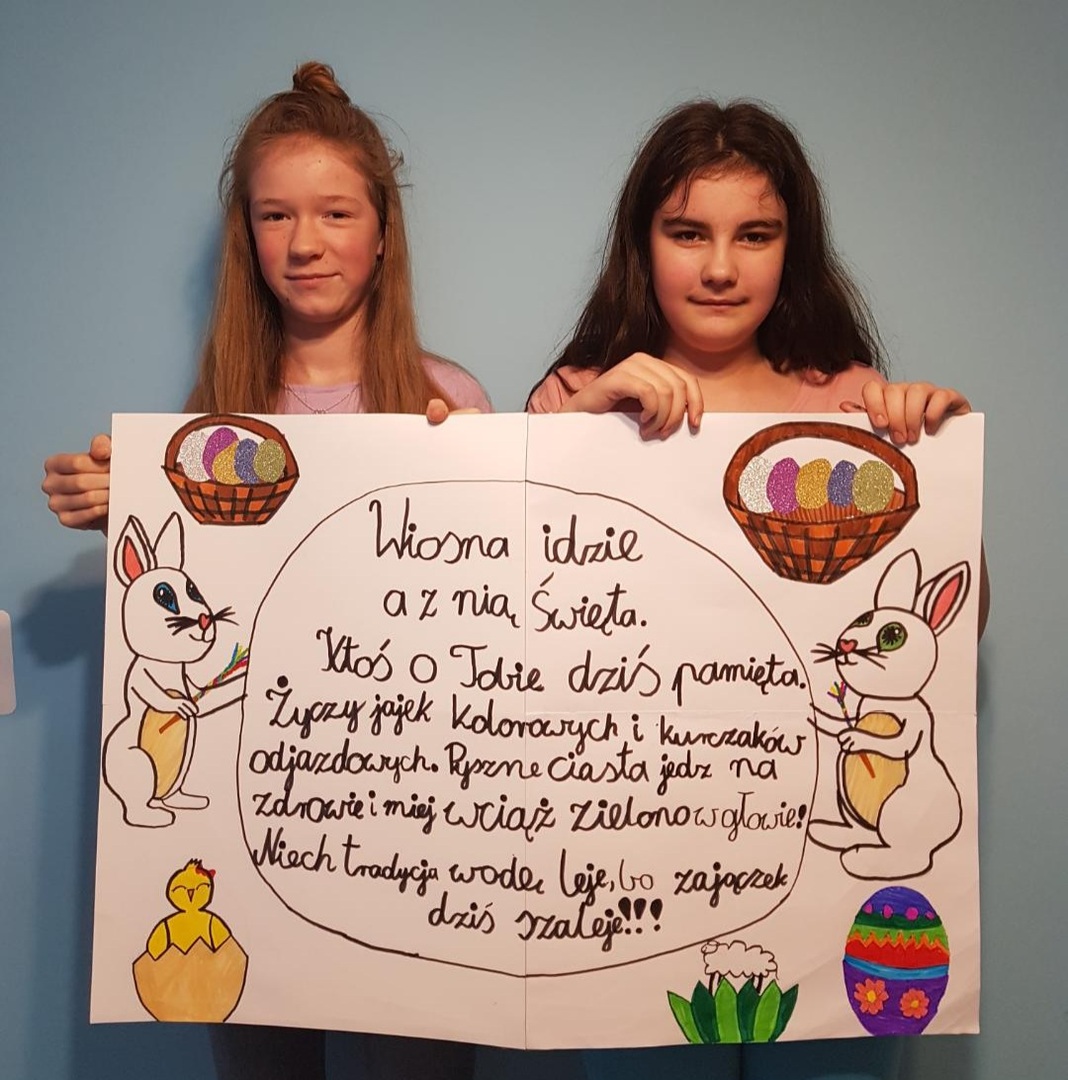 Wiosna idzie
a z nią Święta.
Ktoś o Tobie dziś pamięta.
Życzy jajek kolorowych i kurczaków
odjazdowych. Pyszne ciasta jedz na
zdrowie i miej wciąż zielono w głowie!
Niech tradycja wodę leje, bo zajączek
dziś szaleje!!!